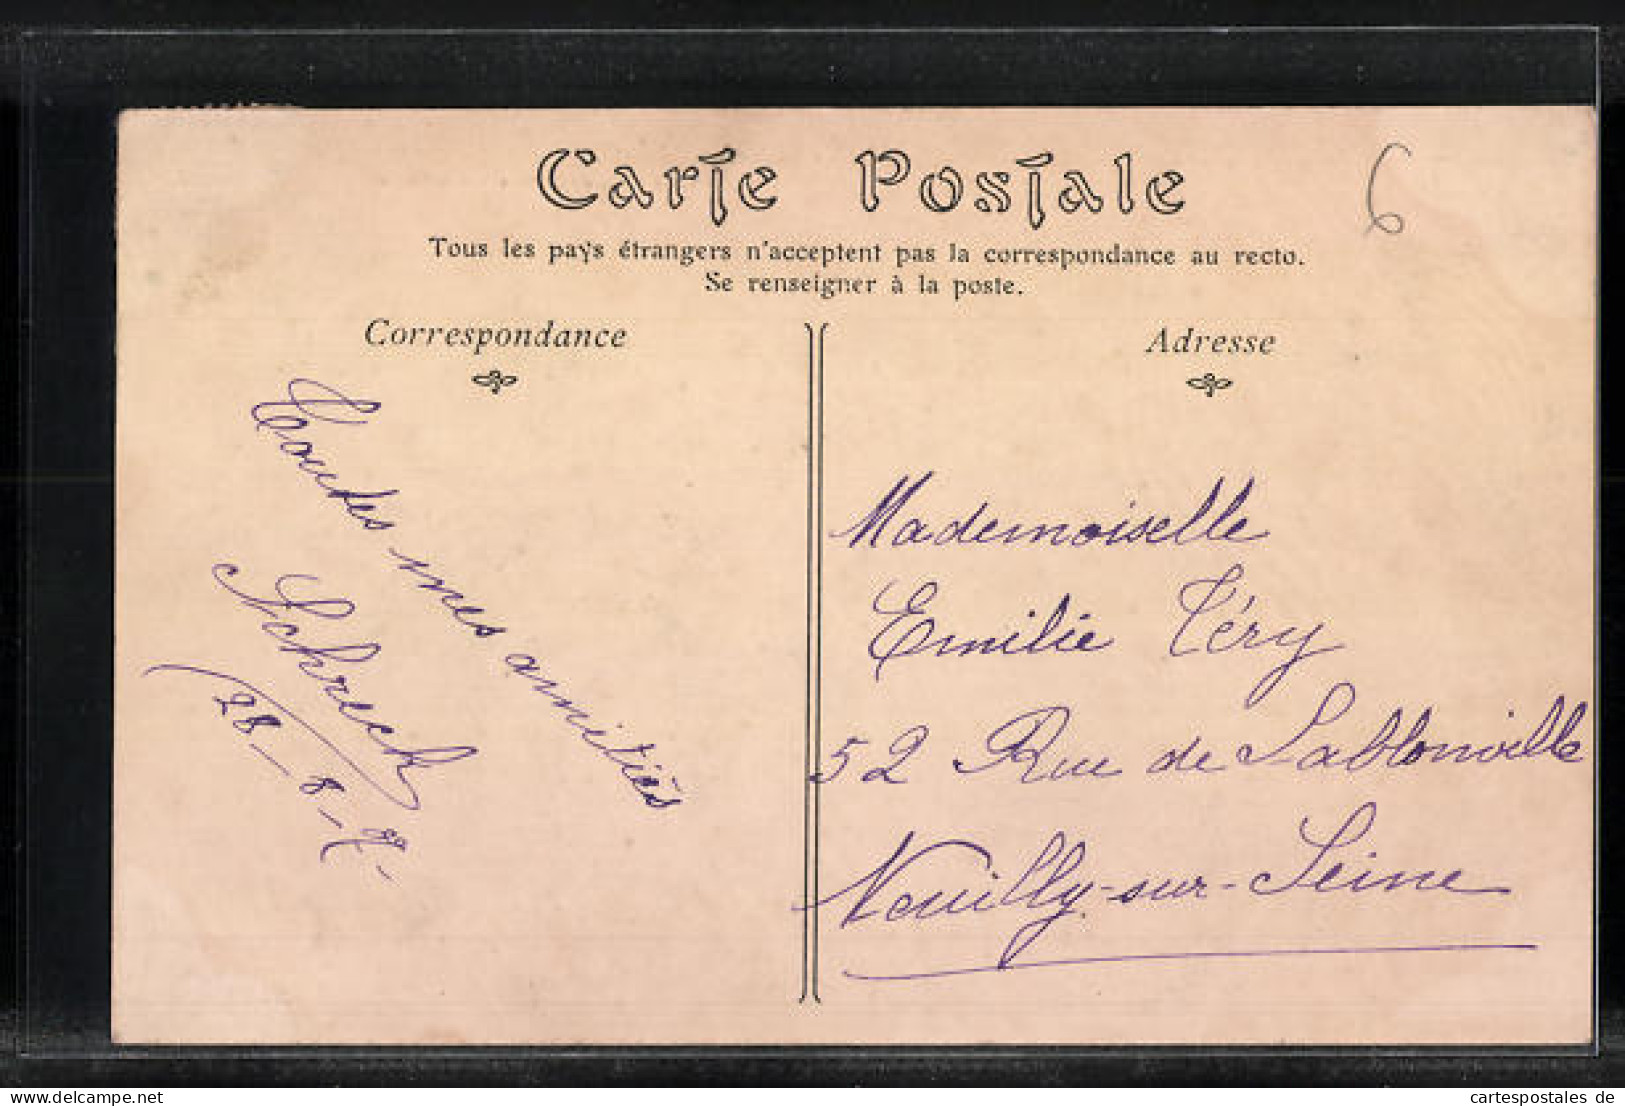 Carte Postale
6
Tous les pays étrangers n'acceptent pas la correspondance au recto.
Se renseigner à la poste.
Correspondance
Toutes mes amitiés
Schreck
28-8-7-
Adresse
Mademoiselle
Emilie Téry
52 Rue de Sablonville
Neuilly-sur-Seine
www.delcampe.net
cartespostales de